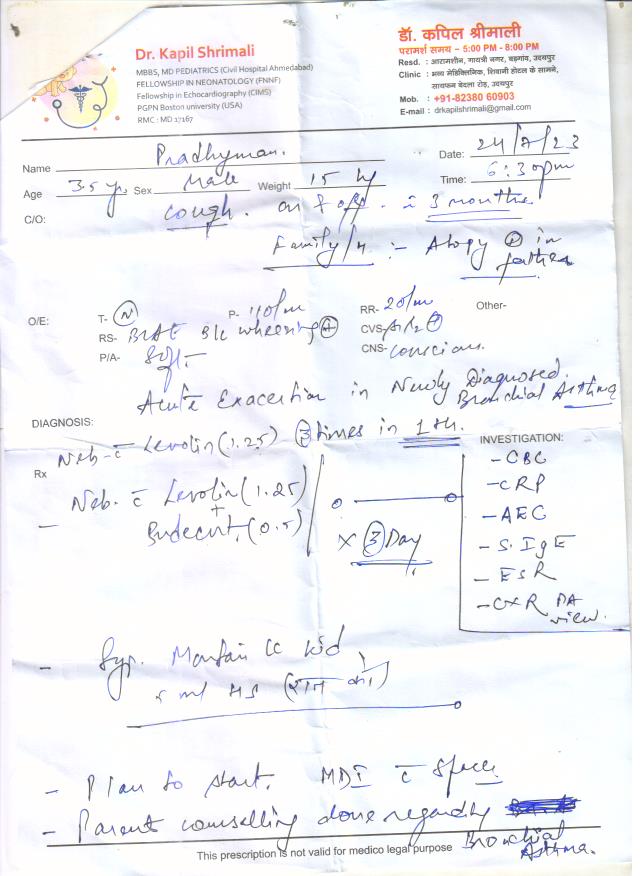 Dr. Kapil Shrimali
MBBS, MD PEDIATRICS (Civil Hospital Ahmedabad)
FELLOWSHIP IN NEONATOLOGY (FNNF)
Fellowship in Echocardiography (CIMS)
PGPN Boston university (USA)
RMC : MD 17167
डॉ. कपिल श्रीमाली
परामर्श समय – 5:00 PM - 8:00 PM
Resd. : आरामशीन, गायत्री नगर, बड़गांव, उदयपुर
Clinic : भव्य मेडिक्लिनिक, शिवानी होटल के सामने,
सायफन बेदला रोड़, उदयपुर
Mob. : +91-82380 60903
E-mail : drkapilshrimali@gmail.com
Name Pradhyman. Date: 24/7/23
Age 3.5 yr Sex Male Weight 15 kg Time: 6:30pm
C/O: cough. on & off. 3 months.
Family/H :- Atopy + in father
O/E: T- N P- 110/m RR- 20/m Other-
RS- BLAE B/L wheezing + CVS- S1/S2 +
P/A- Soft CNS- conscious.
DIAGNOSIS: Acute Exacertion in Newly Diagnosed.
Bronchial Asthma
Neb - c̄ Levolin (1.25) 3 times in 1 hr.
Rx
- Neb. c̄ Levolin (1.25)
+
Budecort (0.5)
x 3 Day
INVESTIGATION:
- CBC
- CRP
- AEC
- S. IgE
- ESR
- CXR PA
view.
- Syr. Montair LC kid
5 ml HS (रात को)
- Plan to start. MDI c̄ Spacer
- Parent counselling done regarding
Bronchial
Asthma.
This prescription is not valid for medico legal purpose